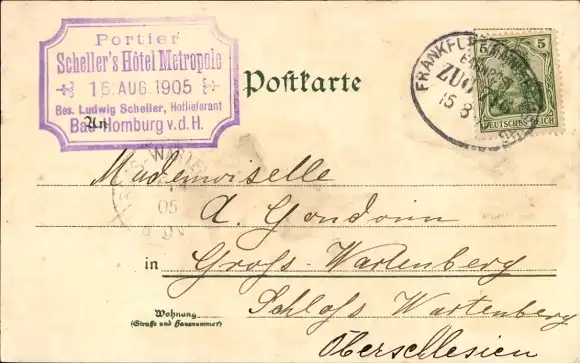 Portier
Scheller's Hôtel Metropole
15. AUG. 1905
Bes. Ludwig Scheller, Hoflieferant
Bad Homburg v. d. H.
An
Postkarte
5 5
DEUTSCHES REICH
ZUG
15 8
05
Mademoiselle
A. Gondoin
in Groß-Wartenberg
Wohnung
(Straße und Hausnummer)
Schloß Wartenberg
Oberschlesien